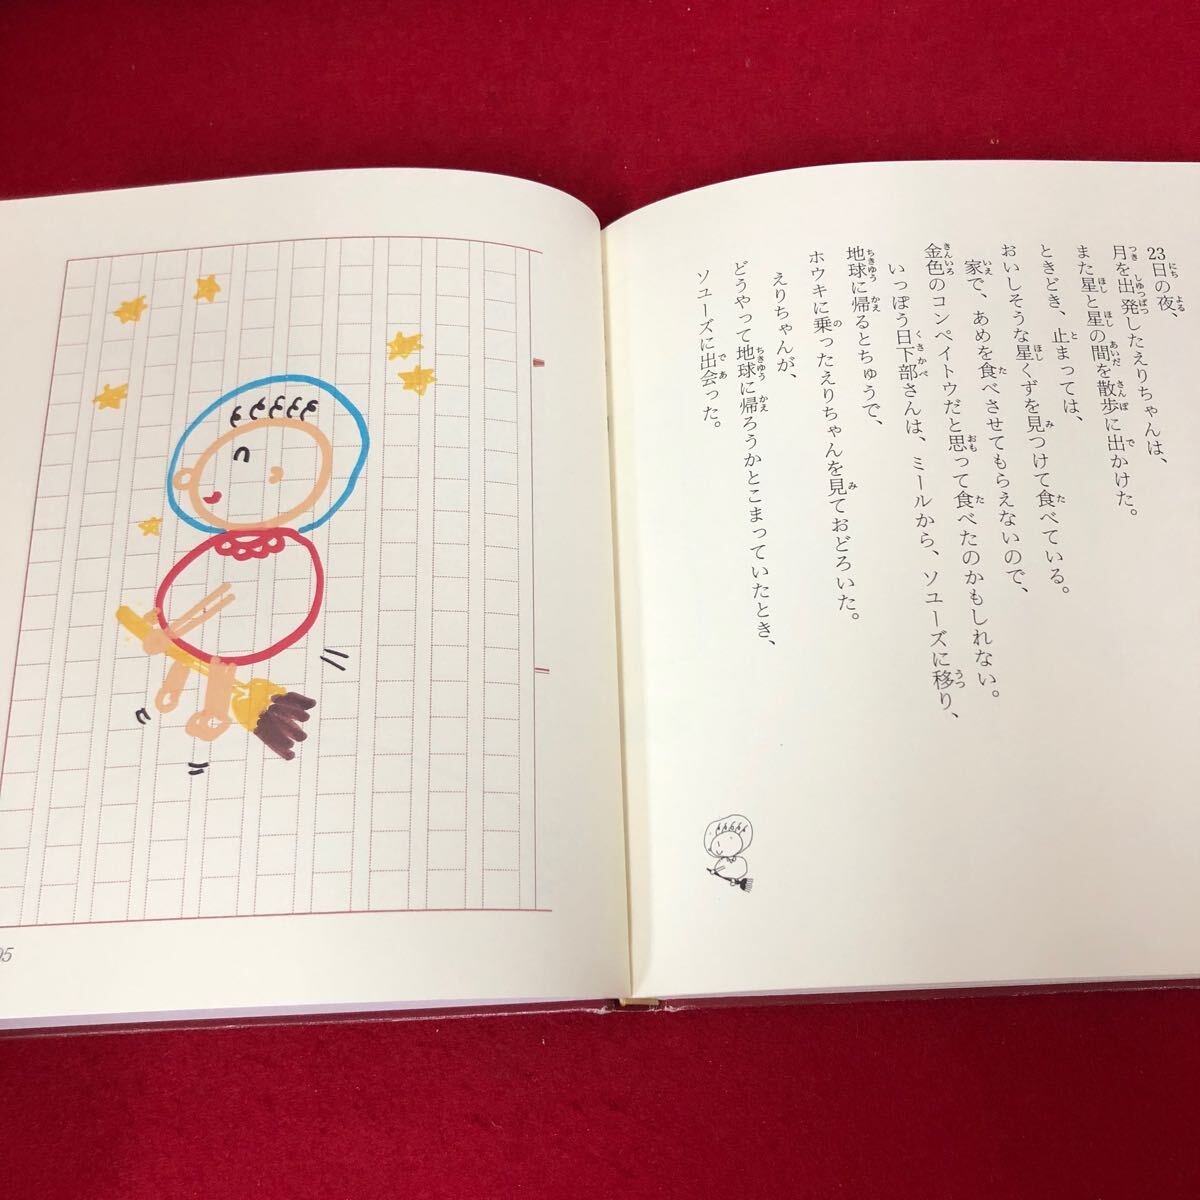 23日の夜、
月を出発したえりちゃんは、
また星と星の間を散歩に出かけた。
ときどき、止まっては、
おいしそうな星くずを見つけて食べている。
家で、あめを食べさせてもらえないので、
金色のコンペイトウだと思って食べたのかもしれない。
いっぽう日下部さんは、ミールから、ソユーズに移り、
地球に帰るとちゅうで、
ホウキに乗ったえりちゃんを見ておどろいた。
えりちゃんが、
どうやって地球に帰ろうかとこまっていたとき、
ソユーズに出会った。
95